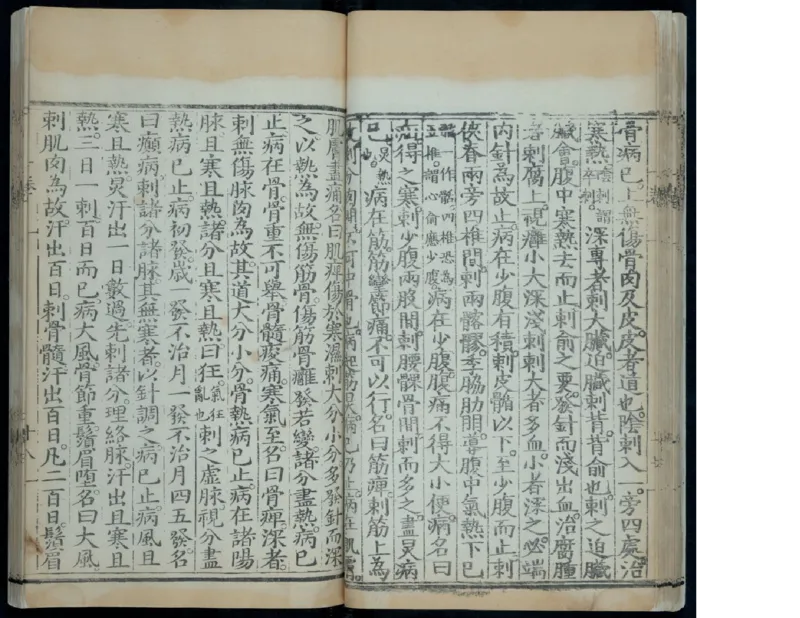 骨病已止無傷骨肉及皮皮者道也陰刺入一旁四處治
寒熱陰刺謂卒刺深專者刺大臟迫臟刺背背俞也刺之迫臟
臟會腹中寒熱去而止刺俞之要發針而淺出血治腐腫
者刺腐上視癰小大深淺刺刺大者多血小者深之必端
內針為故止病在少腹有積刺皮䯏以下至少腹而止刺
俠脊兩旁四椎間刺兩髂髎季脇肋間導腹中氣熱下已
作髓四椎恐為五椎謂心俞應少腹病在少腹腹痛不得大小便病名曰
疝得之寒刺少腹兩股間刺腰髁骨間刺而多之盡炅病
已炅熱也病在筋筋攣節痛不可以行名曰筋痺刺筋上為
刺分肉間不可中骨也病起筋炅病已乃止病在肌膚
肌膚盡痛名曰肌痺傷於寒濕刺大分小分多發針而深
之以熱為故無傷筋骨傷筋骨癰發若變諸分盡熱病已
止病在骨骨重不可舉骨髓痠痛寒氣至名曰骨痺深者
刺無傷脉肉為故其道大分小分骨熱病已止病在諸陽
脉且寒且熱諸分且寒且熱曰狂氣狂亂也刺之虛脉視分盡
熱病已止病初發歲一發不治月一發不治月四五發名
曰癲病刺諸分諸脉其無寒者以針調之病已止病風且
寒且熱炅汗出一日數過先刺諸分理絡脉汗出且寒且
熱三日一刺百日而已病大風骨節重鬚眉墮名曰大風
刺肌肉為故汗出百日刺骨髓汗出百日凡二百日鬚眉